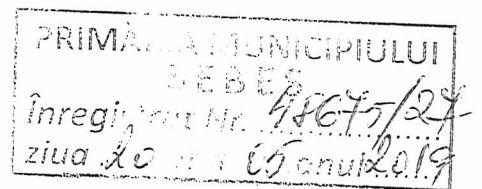 PRIMĂRIA MUNICIPIULUI
SEBEȘ
Înregistrat Nr. 48675/27
ziua 20 05 anul 2019